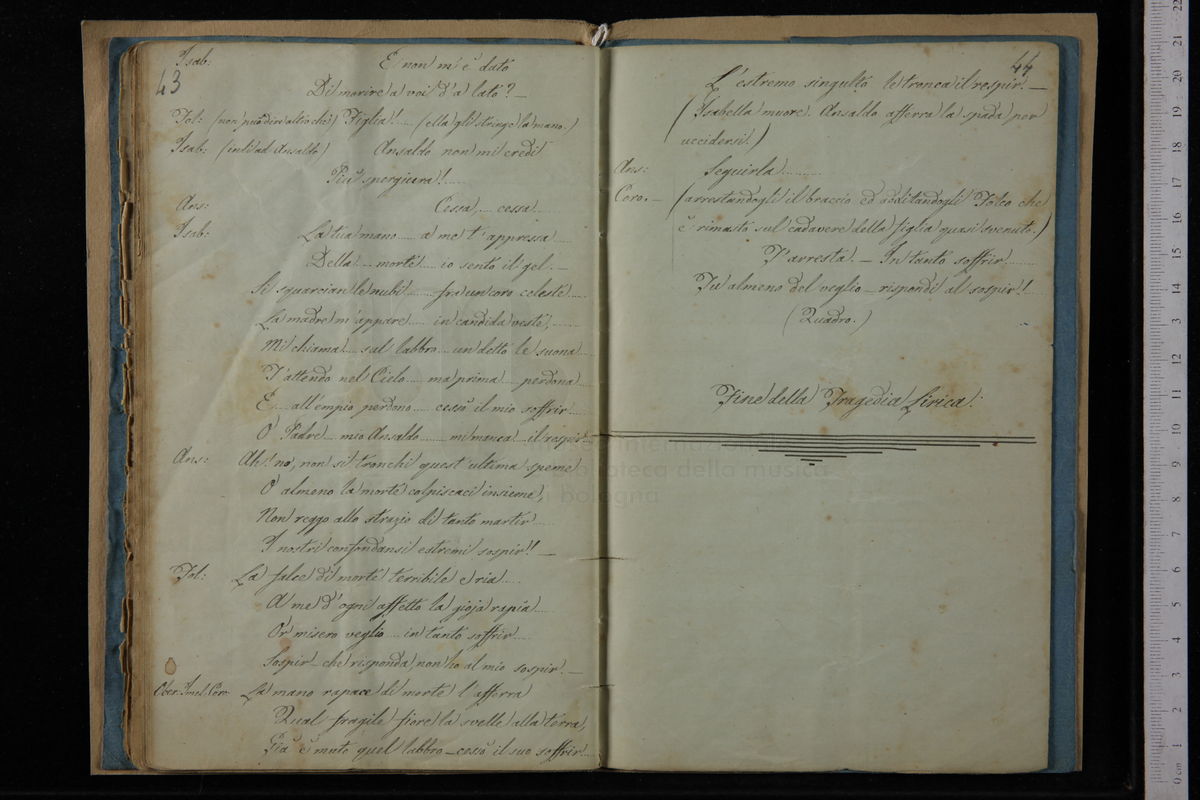 43
Isab: E non m'è dato
Di morire a voi d'a lato? —
Tol: (non può dire altro che) Figlia!.... (ella gli stringe la mano.)
Isab: (indi ad Ansaldo) Ansaldo non mi credi
Più spergiura!......
Ans: Cessa,.... cessa.....
Isab: La tua mano..... a me t'appressa.....
Della.... morte..... io sento il gel. —
Si squarcian le nubi...... fra un coro celeste.....
La madre m'appare..... in candida veste,.......
Mi chiama..... sul labbro.... un detto le suona....
T'attendo nel Cielo..... ma prima..... perdona
E.... all'empio perdono..... cessò il mio soffrir....
O Padre.... mio Ansaldo...... mi manca.... il respir....
Ans: Ah! no, non si tronchi quest'ultima speme
O almeno la morte colpiscaci insieme,
Non reggo allo strazio di tanto martir.....
I nostri confondansi estremi sospir!! —
Tol: La falce di morte terribile e ria.....
A me d'ogni affetto la gioja rapia.....
Or misero veglio.... in tanto soffrir.....
Sospir che risponda non ho al mio sospir. —
Ober. Imel. Coro La mano rapace di morte l'afferra
Qual fragile fiore la svelle alla terra,
Già è muto quel labbro — cessò il suo soffrir....
44
L'estremo singulto le tronca il respir. —
(Isabella muore. Ansaldo afferra la spada per
uccidersi.)
Ans: Seguirla.........
Coro. — (arrestandogli il braccio ed additandogli Tolco che
è rimasto sul cadavere della figlia quasi svenuto.)
T'arresta. — In tanto soffrir.......
Tu almeno del veglio — rispondi al sospir!!
(Quadro.)
Fine della Tragedia Lirica.
internazionale
biblioteca della musica
di bologna